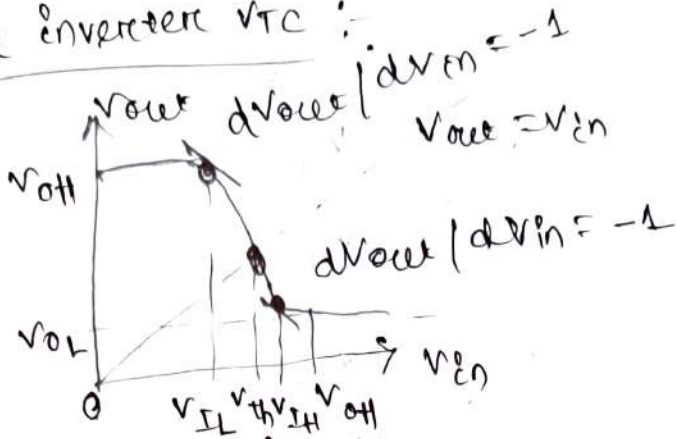 inverter VTC :-
Vout dVout / dVin = -1
Vout = Vin
VOH
dVout / dVin = -1
VOL
Vin
0 VIL Vth VIH VOH